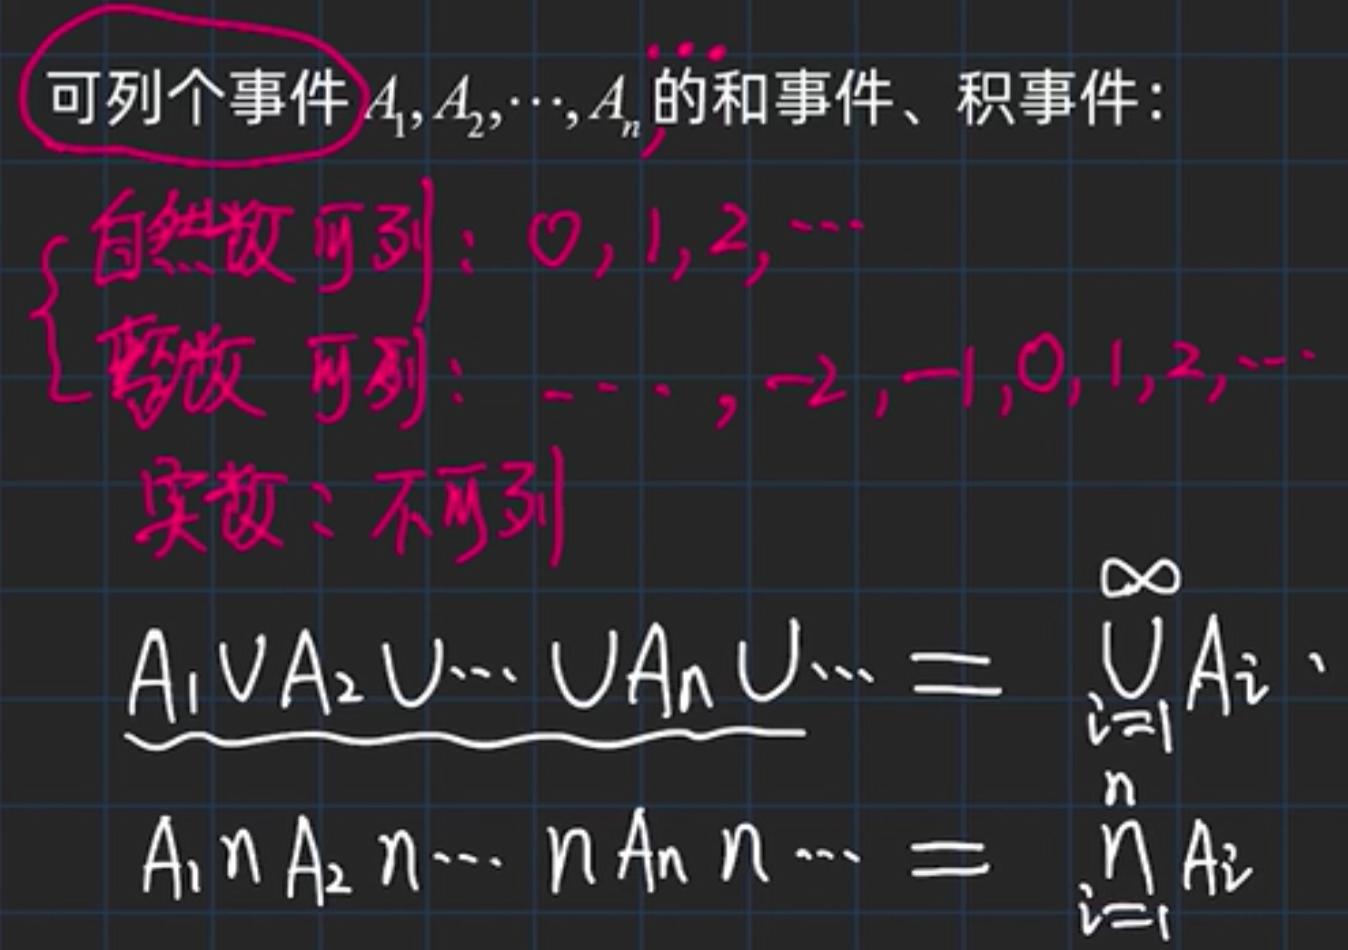 可列个事件 A₁, A₂, ⋯, Aₙ, ⋯ 的和事件、积事件：
自然数可列：0, 1, 2, ⋯
整数可列：⋯, -2, -1, 0, 1, 2, ⋯
实数：不可列
A₁∪A₂∪⋯∪Aₙ∪⋯ = ⋃_{i=1}^{∞} Aᵢ.
A₁∩A₂∩⋯∩Aₙ∩⋯ = ⋂_{i=1}^{n} Aᵢ